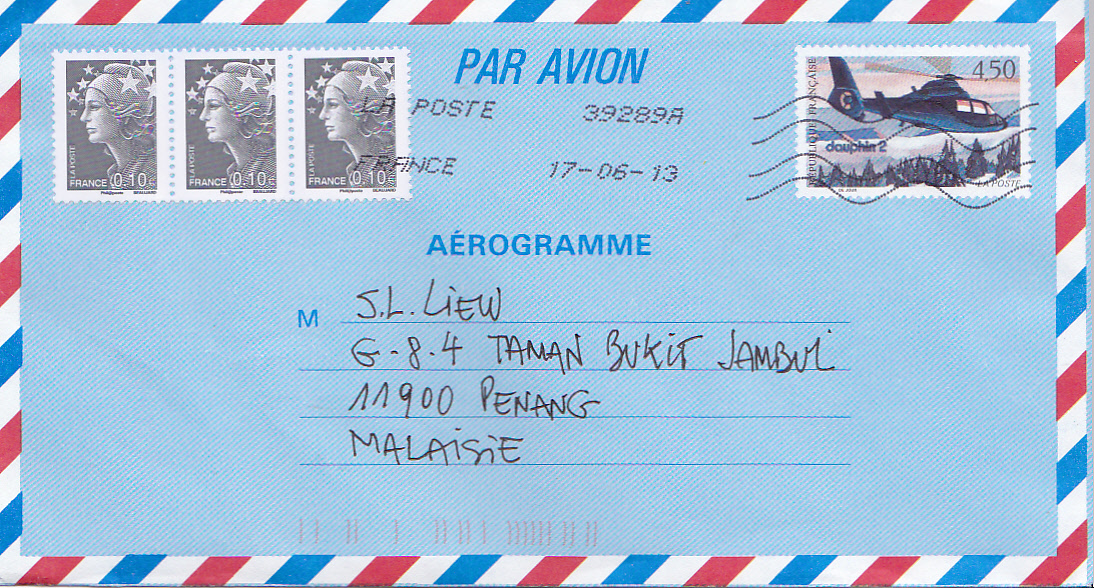 PAR AVION
LA POSTE 39289A
FRANCE 17-06-13
LA POSTE
FRANCE 0,10€
Phil@poste BEAUJARD
LA POSTE
FRANCE 0,10€
Phil@poste BEAUJARD
LA POSTE
FRANCE 0,10€
Phil@poste BEAUJARD
RÉPUBLIQUE FRANÇAISE
4,50
dauphin 2
LA POSTE
AÉROGRAMME
M S.L. LIEW
G-8-4 TAMAN BUKIT JAMBUL
11900 PENANG
MALAISIE